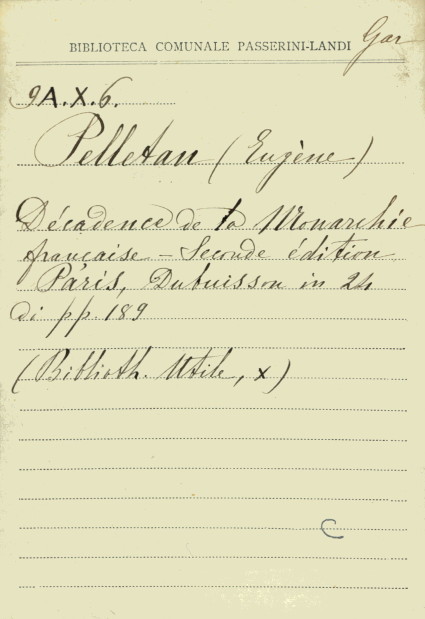 Gar
BIBLIOTECA COMUNALE PASSERINI-LANDI
9A.X.6.
Pelletan (Eugène)
Décadence de la Monarchie
française – Seconde édition
Paris, Dubuisson in 24
di pp. 189
(Biblioth. Utile, X)
C